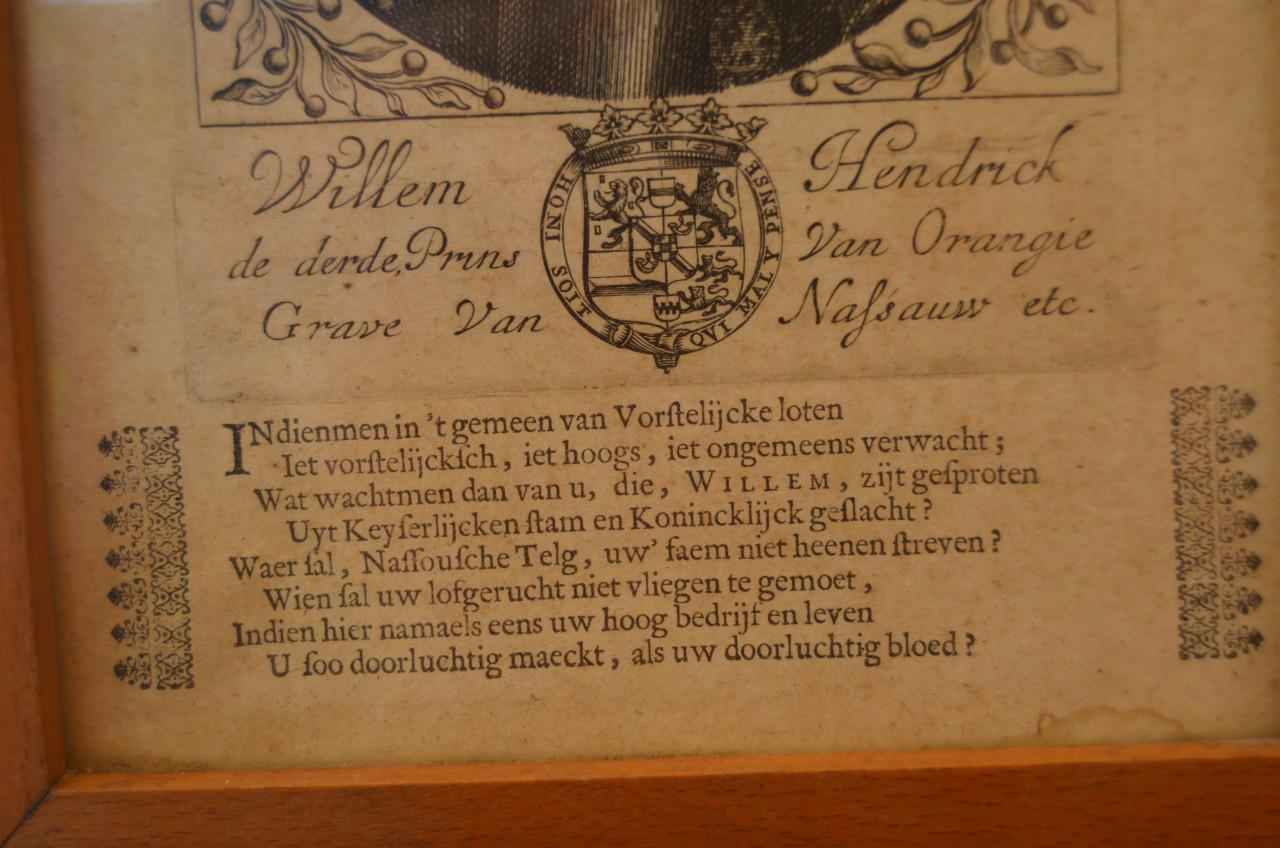 Willem Hendrick
de derde, Prins Van Orangie
Grave Van Naſsauw etc.
HONI SOIT QUI MAL Y PENSE
INdienmen in 't gemeen van Vorſtelijcke loten
Iet vorſtelijckſch, iet hoogs, iet ongemeens verwacht;
Wat wachtmen dan van u, die, WILLEM, zijt geſproten
Uyt Keyſerlijcken ſtam en Konincklijck geſlacht?
Waer ſal, Naſſouſche Telg, uw' faem niet heenen ſtreven?
Wien ſal uw lofgerucht niet vliegen te gemoet,
Indien hier namaels eens uw hoog bedrijf en leven
U ſoo doorluchtig maeckt, als uw doorluchtig bloed?